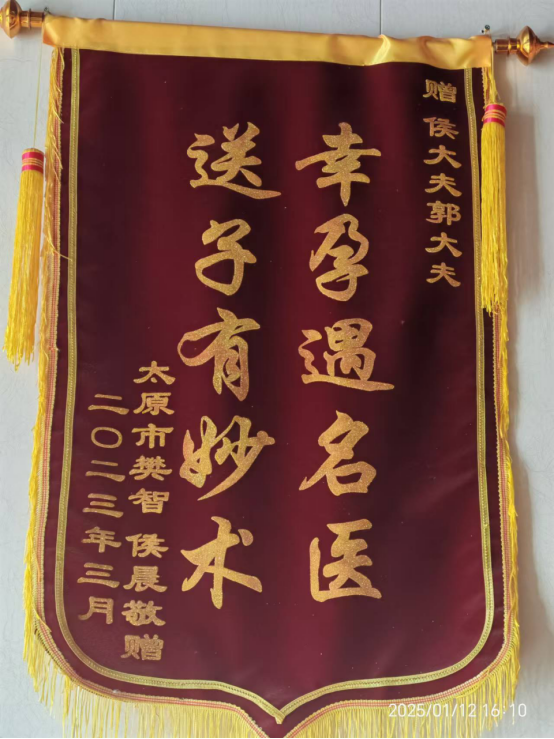 赠 侯大夫郭大夫
幸孕遇名医
送子有妙术
太原市樊智 侯晨敬赠
二〇二三年三月
2025/01/12 16:10